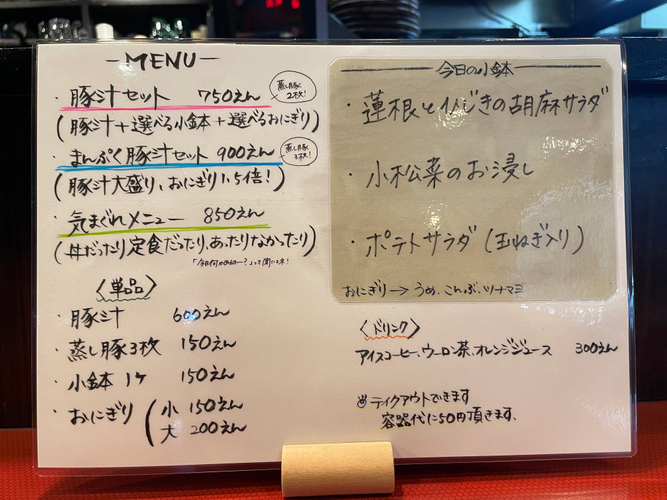 MENU
・豚汁セット 750えん
蒸し豚 2枚!
(豚汁+選べる小鉢+選べるおにぎり)
・まんぷく豚汁セット 900えん
蒸し豚
(豚汁大盛り、おにぎり1,5倍!)
・気まぐれメニュー 850えん
(丼だったり定食だったり、あったりなかったり)
〈単品〉
・豚汁 600えん
・蒸し豚3枚 150えん
・小鉢 1ケ 150えん
・おにぎり (小 150えん
大 200えん
今日の小鉢
・蓮根とひじきの胡麻サラダ
・小松菜のお浸し
・ポテトサラダ(玉ねぎ入り)
おにぎり→うめ、こんぶ、ツナマヨ
〈ドリンク〉
アイスコーヒー、ウーロン茶、オレンジジュース 300えん
テイクアウトできます
容器代に50円頂きます.